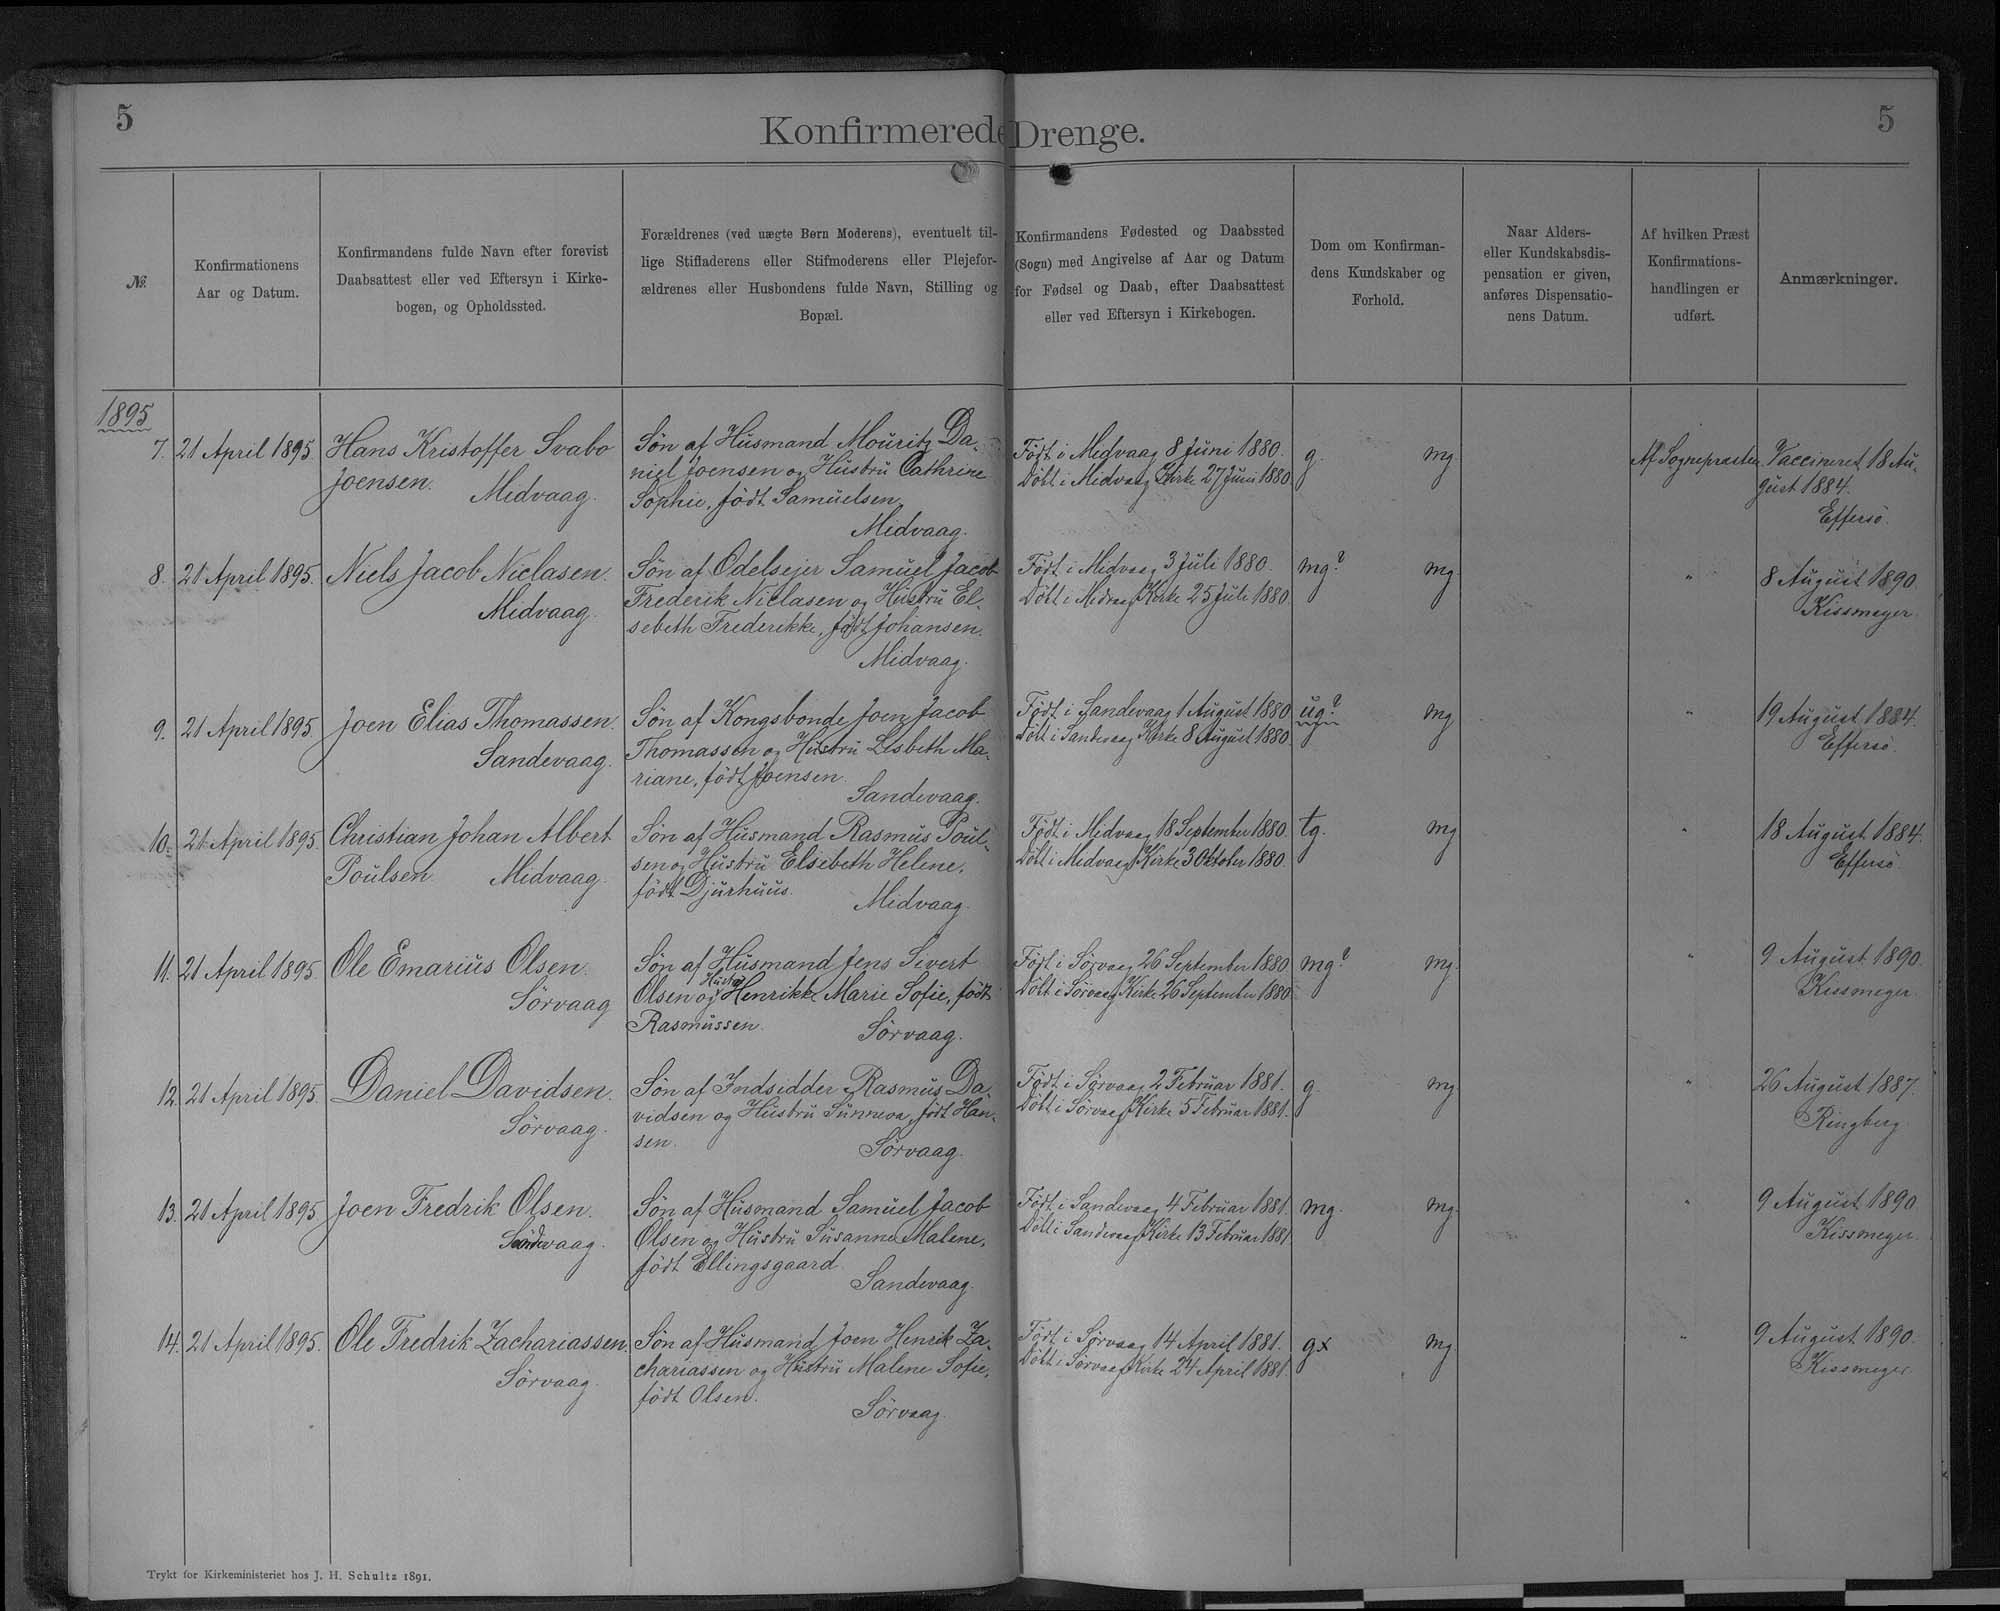 5
Konfirmerede Drenge.
5
№.
Konfirmationens
Aar og Datum.
Konfirmandens fulde Navn efter forevist
Daabsattest eller ved Eftersyn i Kirke-
bogen, og Opholdssted.
Forældrenes (ved uægte Børn Moderens), eventuelt til-
lige Stiffaderens eller Stifmoderens eller Plejefor-
ældrenes eller Husbondens fulde Navn, Stilling og
Bopæl.
Konfirmandens Fødested og Daabssted
(Sogn) med Angivelse af Aar og Datum
for Fødsel og Daab, efter Daabsattest
eller ved Eftersyn i Kirkebogen.
Dom om Konfirman-
dens Kundskaber og
Forhold.
Naar Alders-
eller Kundskabsdis-
pensation er given,
anføres Dispensatio-
nens Datum.
Af hvilken Præst
Konfirmations-
handlingen er
udført.
Anmærkninger.
1895
7. 21 April 1895.
Hans Kristoffer Svabo
Joensen.
Midvaag.
Søn af Husmand Mouritz Da-
niel Joensen og Hustru Cathrine
Sophie, født Samuelsen
Midvaag.
Født i Midvaag 8 Juni 1880.
Døbt i Midvaag Kirke 27 Juni 1880
g.
mg
Af Sognepræsten
Vaccineret 18 Au-
gust 1884.
Effersø.
8. 21 April 1895.
Niels Jacob Niclasen.
Midvaag.
Søn af Odelsejer Samuel Jacob
Frederik Niclasen og Hustru El-
sebeth Frederikke, født Johansen.
Midvaag.
Født i Midvaag 3 Juli 1880.
Døbt i Midvaag Kirke 25 Juli 1880.
mg?
mg
"
8 August 1890.
Kissmeyer
9. 21 April 1895.
Joen Elias Thomassen.
Sandevaag.
Søn af Kongsbonde Joen Jacob
Thomassen og Hustru Lisbeth Ma-
riane, født Joensen.
Sandevaag.
Født i Sandevaag 1 August 1880
Døbt i Sandevaag Kirke 8 August 1880.
ug?
mg
"
19 August 1884.
Effersø.
10. 21 April 1895.
Christian Johan Albert
Poulsen
Midvaag.
Søn af Husmand Rasmus Poul-
sen og Hustru Elsebeth Helene,
født Djurhuus.
Midvaag.
Født i Midvaag 18 September 1880.
Døbt i Midvaag Kirke 3 Oktober 1880.
tg.
mg
"
18 August 1884.
Effersø.
11. 21 April 1895.
Ole Emarius Olsen.
Sörvaag
Søn af Husmand Jens Sivert
Hustru
Olsen og Henrikke Marie Sofie, født
Rasmussen.
Sörvaag.
Født i Sörvaag 26 September 1880.
Døbt i Sörvaag Kirke 26 September 1880.
mg?
mg.
"
9 August 1890.
Kissmeyer.
12. 21 April 1895.
Daniel Davidsen.
Sörvaag.
Søn af Indsidder Rasmus Da-
vidsen og Hustru Sunneva, født Han-
sen.
Sörvaag.
Født i Sörvaag 2 Februar 1881.
Døbt i Sörvaag Kirke 5 Februar 1881.
g.
mg
"
26 August 1887.
Ringberg
13. 21 April 1895
Joen Fredrik Olsen.
Sandevaag.
Søn af Husmand Samuel Jacob
Olsen og Hustru Susanne Malene,
født Ellingsgaard.
Sandevaag.
Født i Sandevaag 4 Februar 1881.
Døbt i Sandevaag Kirke 13 Februar 1881
mg.
mg.
"
9 August 1890.
Kissmeyer.
14. 21 April 1895.
Ole Fredrik Zachariassen
Sörvaag.
Søn af Husmand Joen Henrik Za-
chariassen og Hustru Malene Sofie,
født Olsen.
Sörvaag.
Født i Sörvaag 14 April 1881.
Døbt i Sörvaag Kirke 24 April 1881
gx
mg.
"
9 August 1890.
Kissmeyer
Trykt for Kirkeministeriet hos J. H. Schultz 1891.